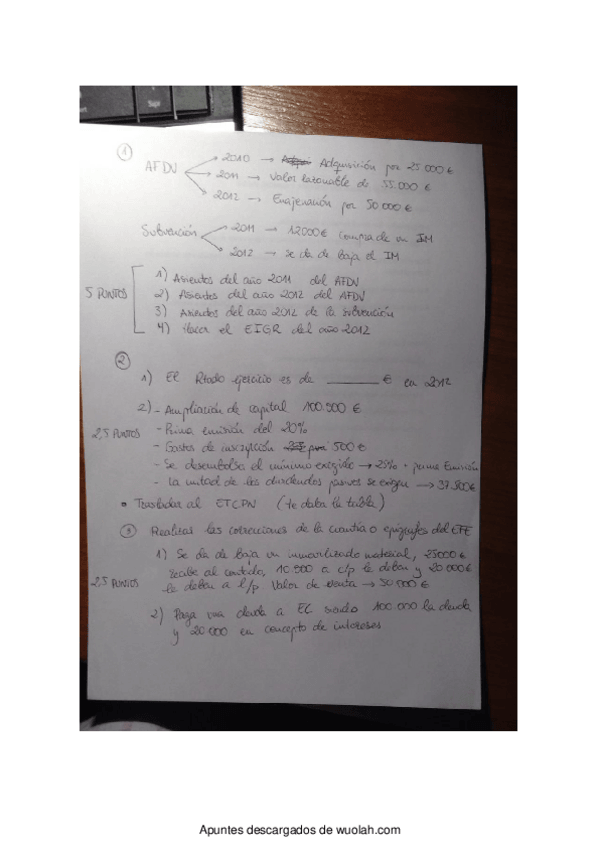 1
AFDV → 2010 → Adquisición por 25.000 €
→ 2011 → Valor razonable de 55.000 €
→ 2012 → Enajenación por 50.000 €
Subvención → 2011 → 12000€ compra de un IM
→ 2012 → se da de baja el IM
5 PUNTOS
1) Asientos del año 2011 del AFDV
2) Asientos del año 2012 del AFDV
3) Asientos del año 2012 de la subvención
4) Hacer el EIGR del año 2012
2
1) El Rtado ejercicio es de ______ € en 2012
2) - Ampliación de capital 100.500 €
2,5 PUNTOS
- Prima emisión del 20%
- Gastos de inscripción 500 €
- Se desembolsa el mínimo exigido → 25% + prima Emisión
- La mitad de los dividendos pasivos se exigen → 37.500€
• Trasladar al ETCPN (te daba la tabla)
3 Realizar las correcciones de la cuantía o epígrafes del EFE
1) Se da de baja un inmovilizado material, 25000€
recibe al contado, 10.500 a c/p le deben y 20.000€
2,5 PUNTOS
le deben a l/p Valor de venta → 50.000 €
2) Paga una deuda a EC siendo 100.000 la deuda
y 20.000 en concepto de intereses
Apuntes descargados de wuolah.com